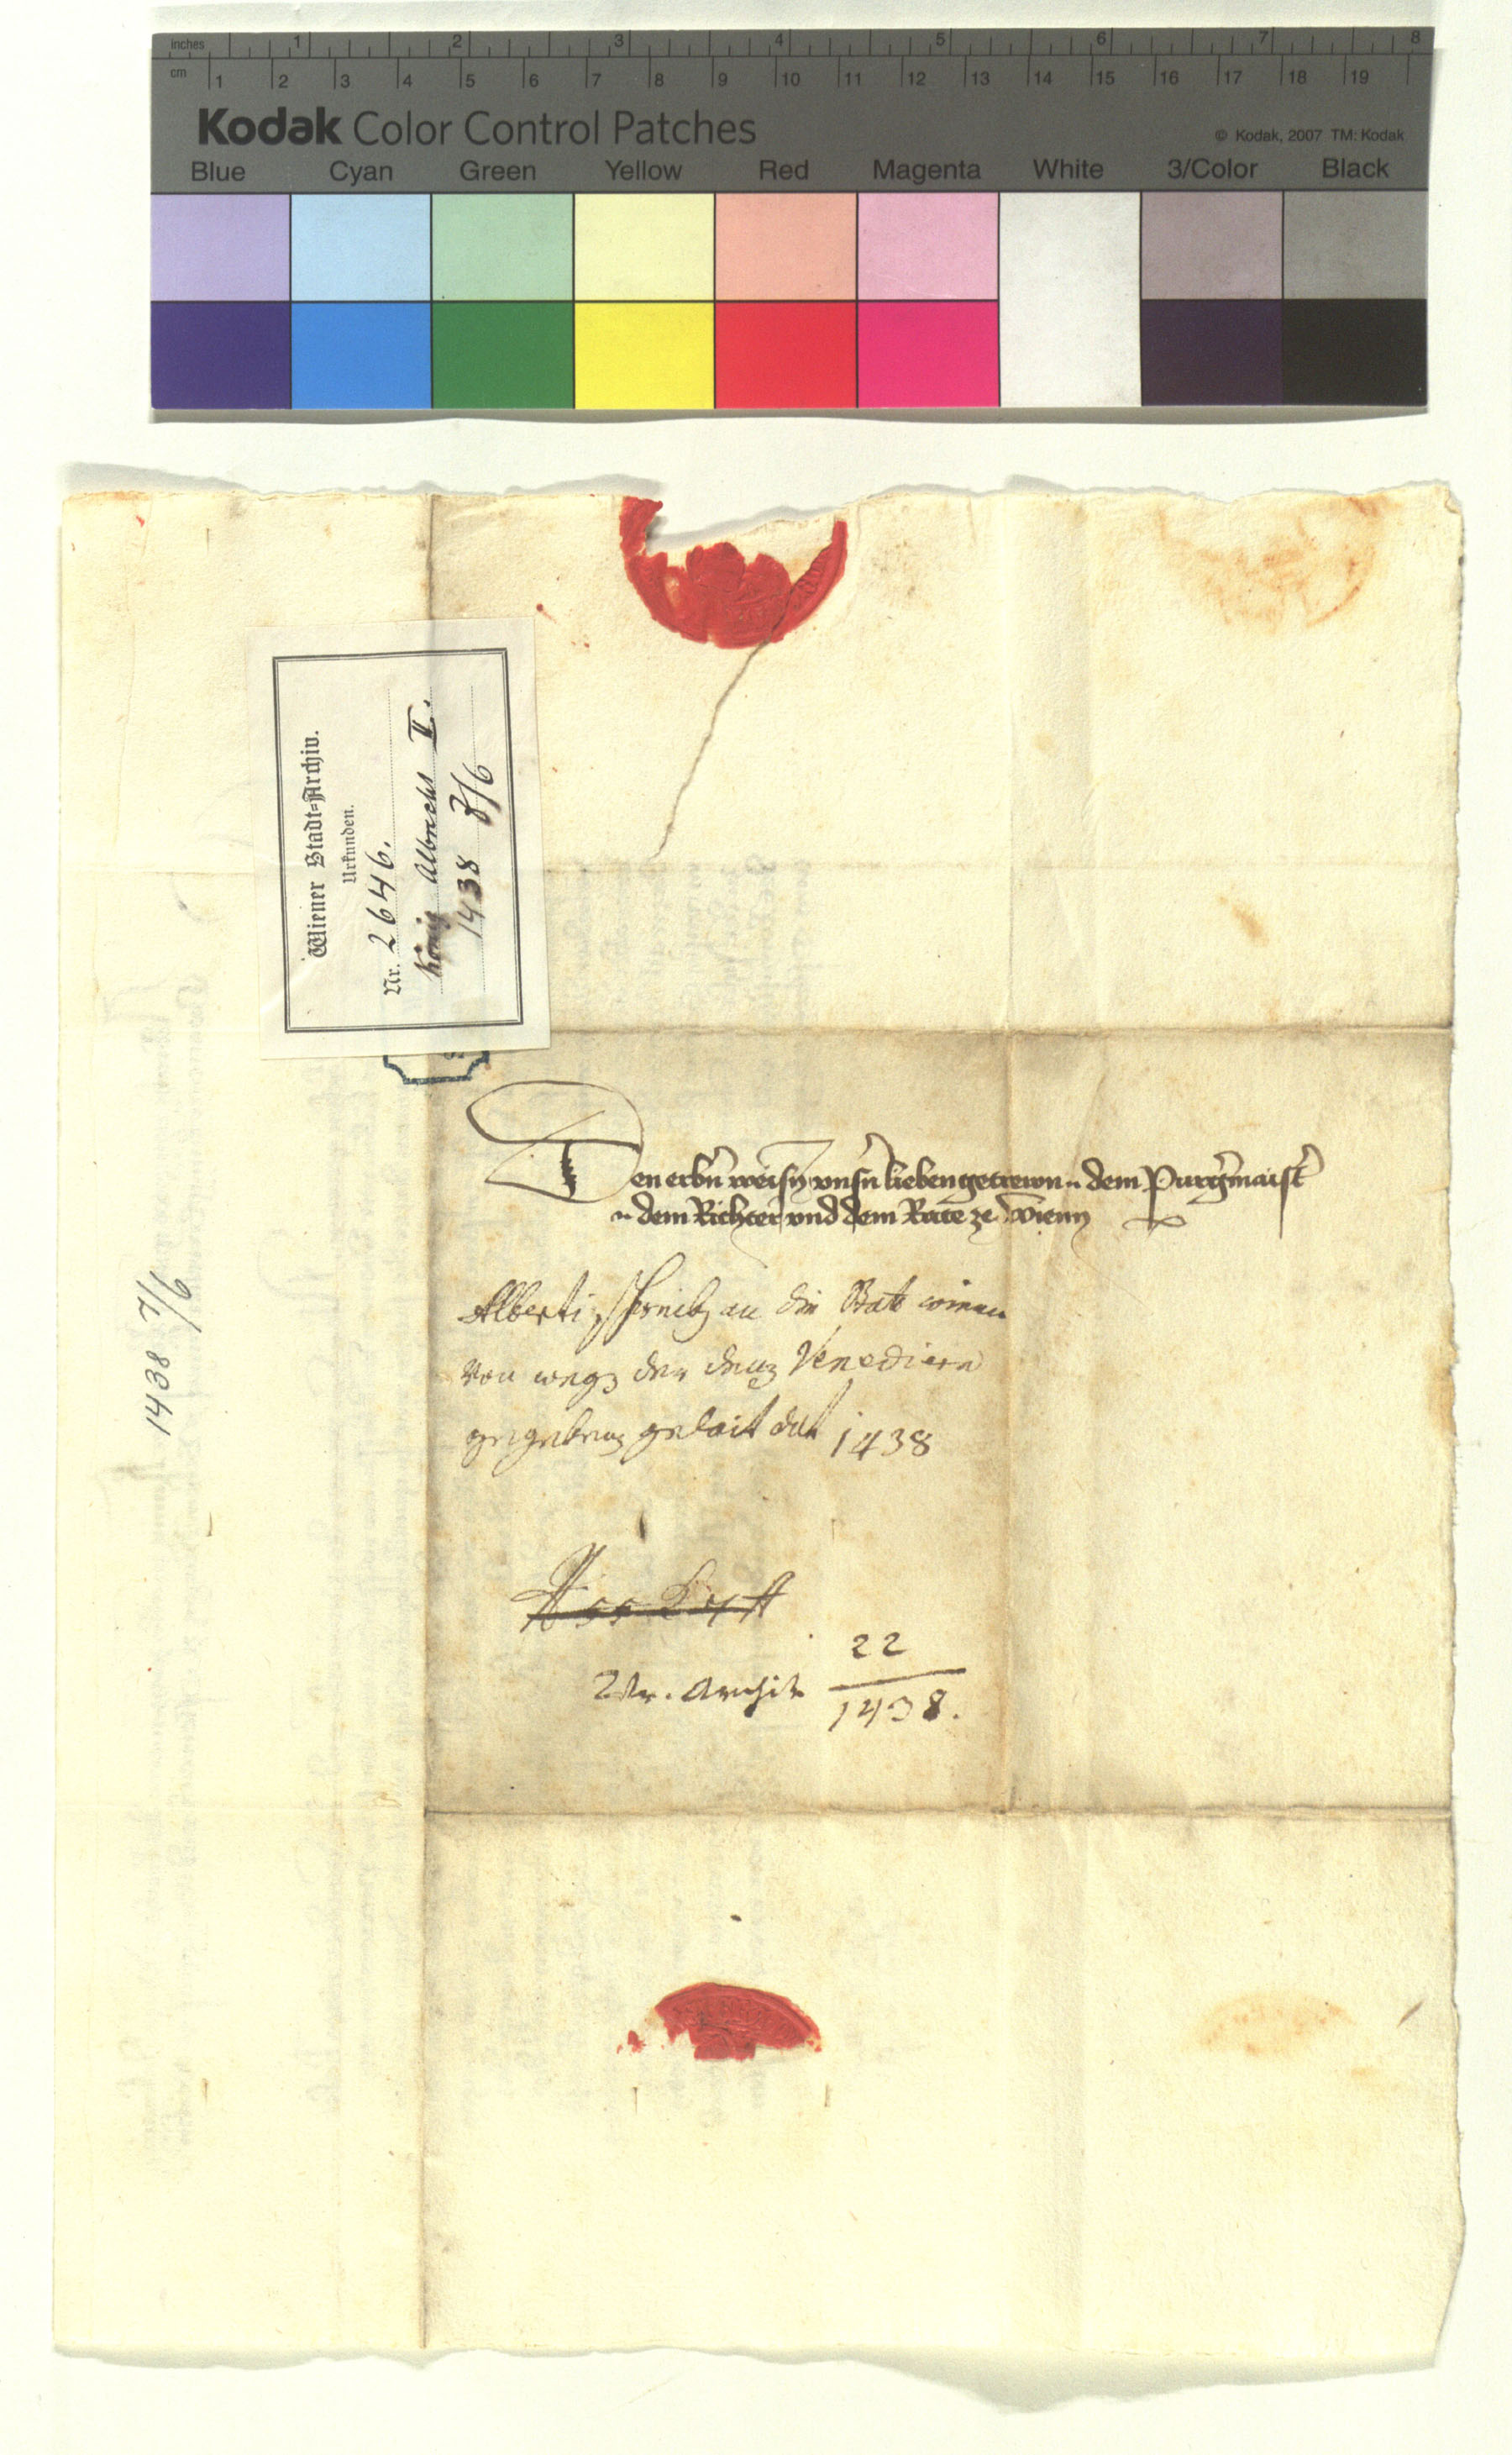 inches 1 2 3 4 5 6 7 8
cm 1 2 3 4 5 6 7 8 9 10 11 12 13 14 15 16 17 18 19
Kodak Color Control Patches
© Kodak, 2007 TM: Kodak
Blue Cyan Green Yellow Red Magenta White 3/Color Black
Wiener Stadt-Archiv.
Urkunden.
Nr. 2646.
König Albrecht II.
1438 7/6
Den erbn weisn vnsn lieben getrewn dem Purgmaist
dem Richter vnd dem Rate ze Wienn
Alberti schreib an die Statt wienn
von weg der den Venediern
gegeben gelait dat 1438
22
Archiv
1438.
1438 7/6